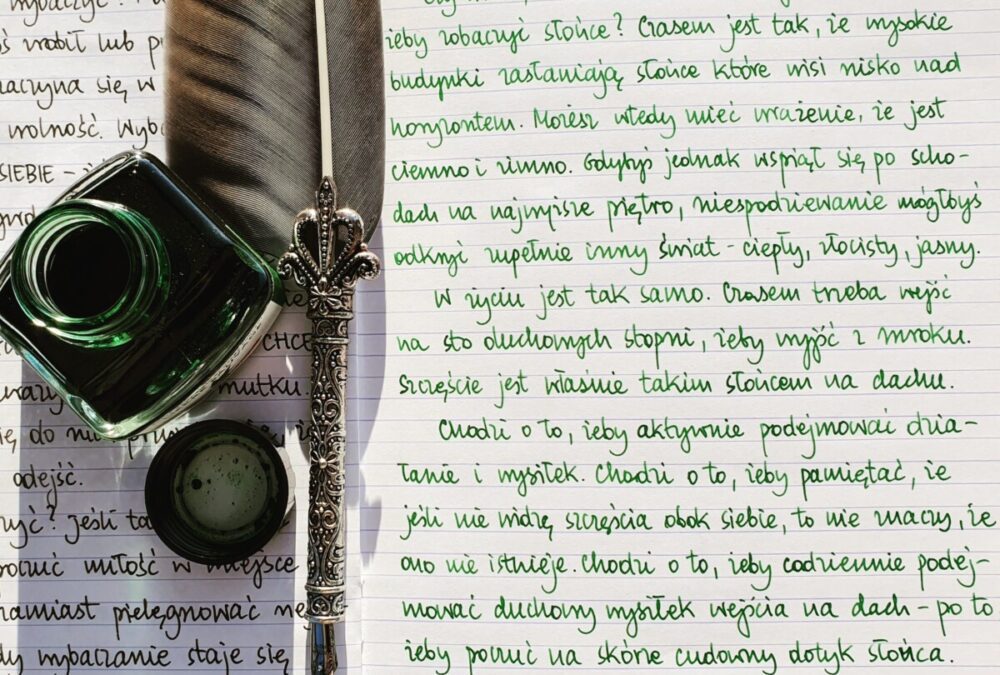 wybaczyć?
ś zrobił lub
zaczyna się w
wolność.
SIEBIE –
CHCE
smutku.
się do
odejść.
Jeśli
poczuć miłość w miejsce
zamiast pielęgnować
wybaczanie staje się
żeby zobaczyć słońce? Czasem jest tak, że wysokie
budynki zasłaniają słońce które wisi nisko nad
horyzontem. Możesz wtedy mieć wrażenie, że jest
ciemno i zimno. Gdybyś jednak wspiął się po scho-
dach na najwyższe piętro, niespodziewanie mógłbyś
odkryć zupełnie inny świat – ciepły, złocisty, jasny.
W życiu jest tak samo. Czasem trzeba wejść
na sto duchowych stopni, żeby wyjść z mroku.
Szczęście jest właśnie takim słońcem na dachu.
Chodzi o to, żeby aktywnie podejmować dzia-
łanie i wysiłek. Chodzi o to, żeby pamiętać, że
jeśli nie widzę szczęścia obok siebie, to nie znaczy, że
ono nie istnieje. Chodzi o to, żeby codziennie podej-
mować duchowy wysiłek wejścia na dach – po to
żeby poczuć na skórze cudowny dotyk słońca.